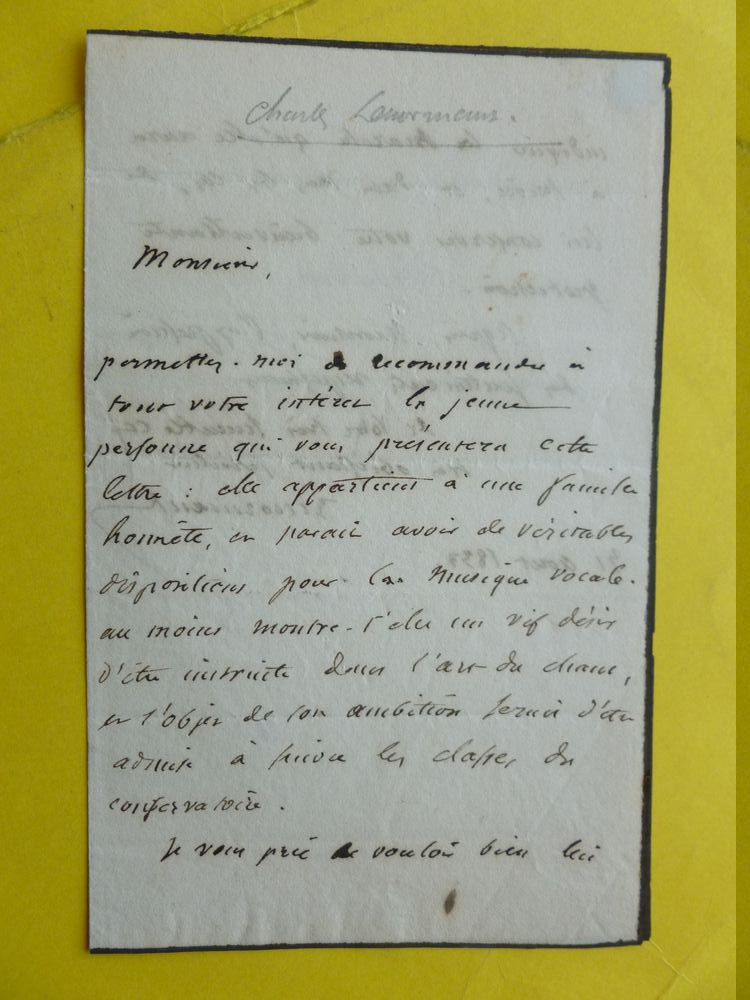 Charles
Monsieur,
permettez-moi de recommander à
tout votre intérêt la jeune
personne qui vous présentera cette
lettre : elle appartient à une famille
honnête, et parait avoir de véritables
dispositions pour la musique vocale.
au moins montre-t'elle un vif désir
d'être instruite dans l'art du chant,
et l'objet de son ambition serait d'être
admise à suivre les classes du
conservatoire.
Je vous prie de vouloir bien lui